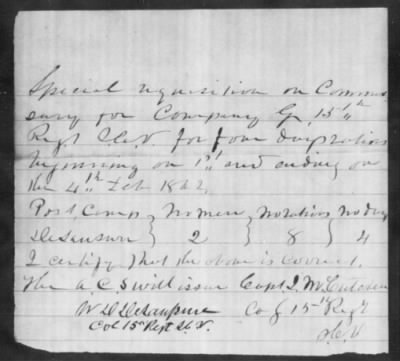 Special requisition on Commis
sary for Company G 15th
Regt S.C.V. for four days rations
beginning on 1st and ending on
the 4th Feb 1862.
Post Camp } No men } No rations } No days
DeSaussure } 2 } 8 } 4
I certify that the above is correct.
The A.C.S will issue Capt J. McCutchen
W D DeSaussure Co G 15th Regt
Col 15th Regt S.C.V. S.C.V